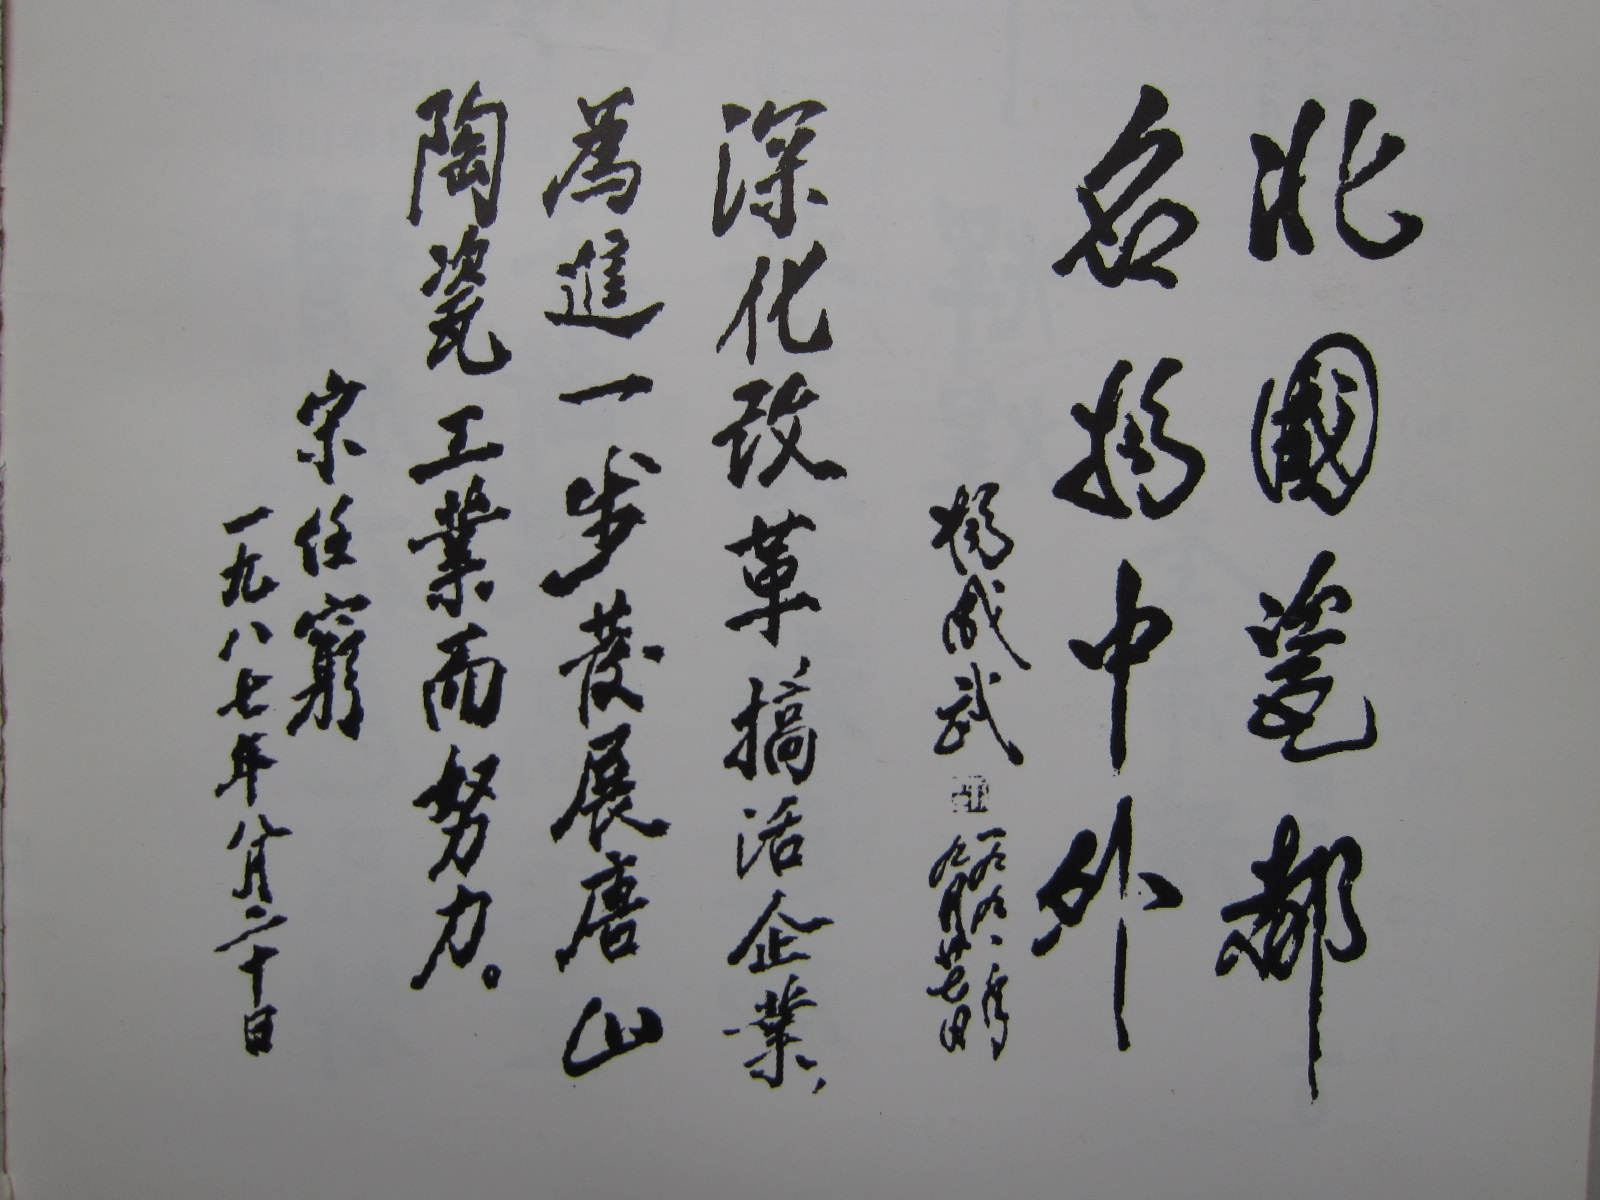 北國瓷都
名揚中外
楊成武
一九九一年
九月廿七日
深化改革，搞活企業，
為進一步發展唐山
陶瓷工業而努力。
宋任窮
一九八七年八月二十日